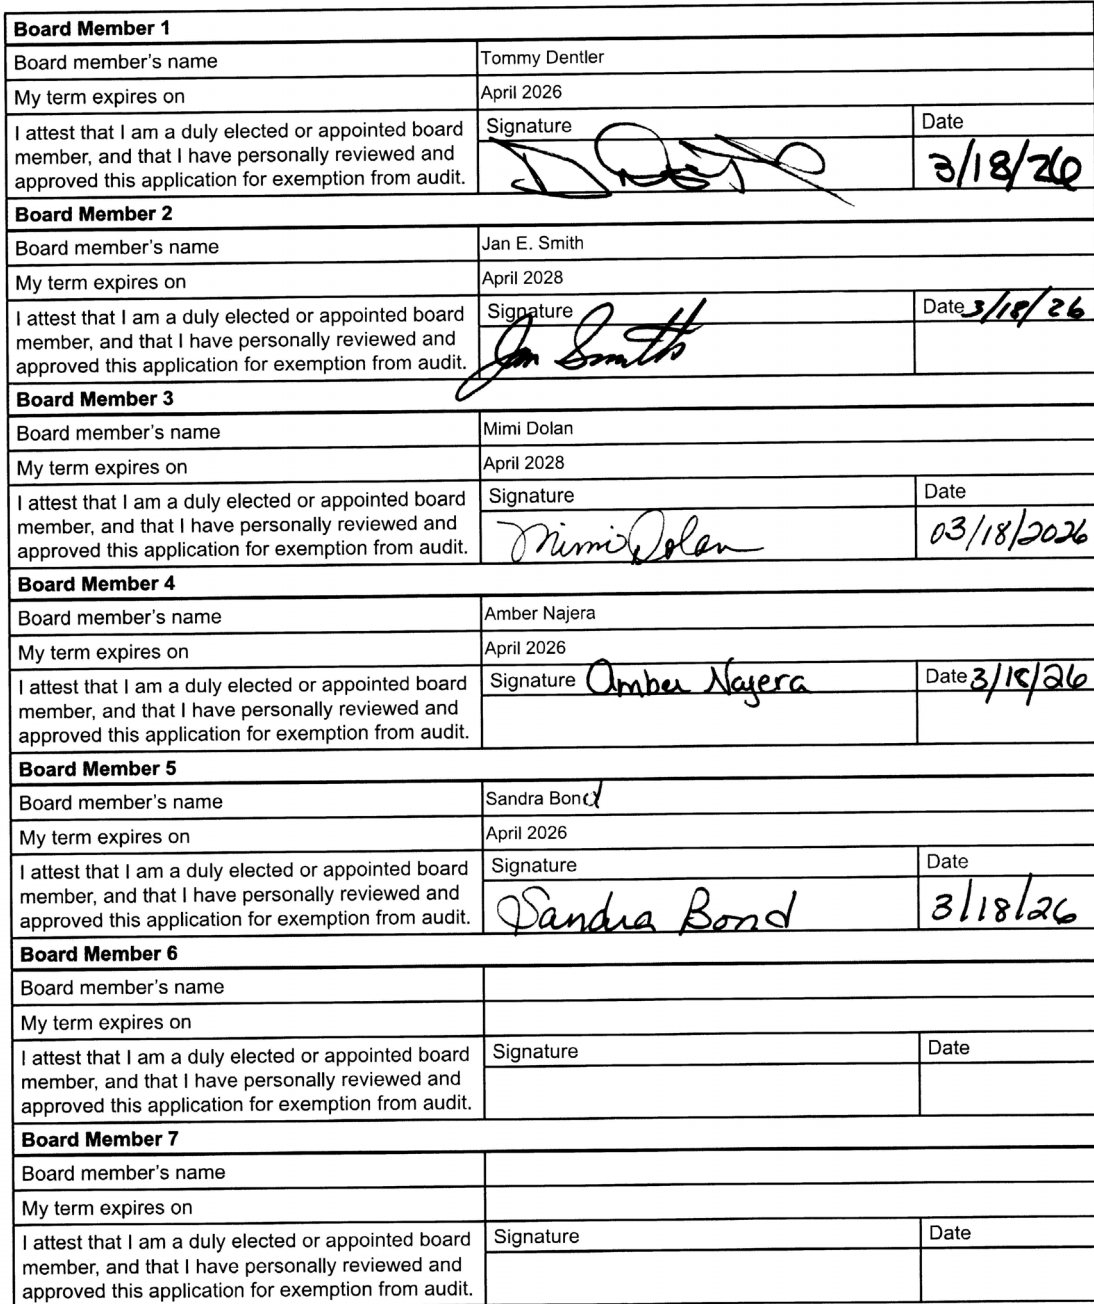 Board Member 1
Board member's name Tommy Dentler
My term expires on April 2026
I attest that I am a duly elected or appointed board
member, and that I have personally reviewed and
approved this application for exemption from audit.
Signature Date
3/18/26
Board Member 2
Board member's name Jan E. Smith
My term expires on April 2028
I attest that I am a duly elected or appointed board
member, and that I have personally reviewed and
approved this application for exemption from audit.
Signature Date 3/18/26
Jan Smith
Board Member 3
Board member's name Mimi Dolan
My term expires on April 2028
I attest that I am a duly elected or appointed board
member, and that I have personally reviewed and
approved this application for exemption from audit.
Signature Date
Mimi Dolan 03/18/2026
Board Member 4
Board member's name Amber Najera
My term expires on April 2026
I attest that I am a duly elected or appointed board
member, and that I have personally reviewed and
approved this application for exemption from audit.
Signature Amber Najera Date 3/18/26
Board Member 5
Board member's name Sandra Bond
My term expires on April 2026
I attest that I am a duly elected or appointed board
member, and that I have personally reviewed and
approved this application for exemption from audit.
Signature Date
Sandra Bond 3/18/26
Board Member 6
Board member's name
My term expires on
I attest that I am a duly elected or appointed board
member, and that I have personally reviewed and
approved this application for exemption from audit.
Signature Date
Board Member 7
Board member's name
My term expires on
I attest that I am a duly elected or appointed board
member, and that I have personally reviewed and
approved this application for exemption from audit.
Signature Date